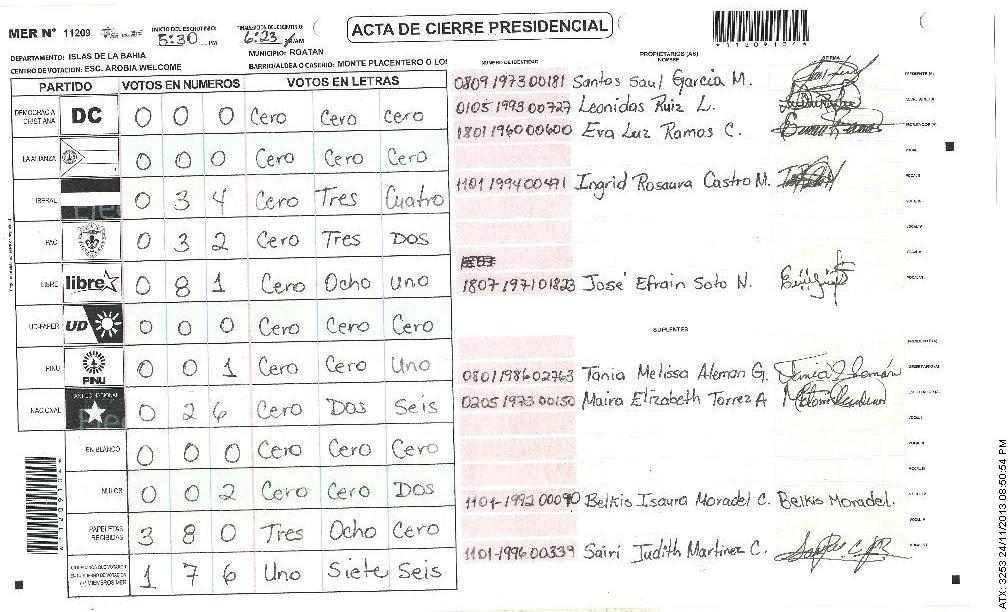 MER N° 11209
INICIO DEL ESCRUTINIO: 5:30 PM
6:23
ACTA DE CIERRE PRESIDENCIAL
DEPARTAMENTO: ISLAS DE LA BAHIA
MUNICIPIO: ROATAN
CENTRO DE VOTACION: ESC. AROBIA WELCOME
BARRIO/ALDEA O CASERIO: MONTE PLACENTERO O LO
PARTIDO VOTOS EN NUMEROS VOTOS EN LETRAS
DEMOCRACIA CRISTIANA DC 0 0 0 Cero Cero Cero
LA ALIANZA 0 0 0 Cero Cero Cero
LIBERAL 0 3 4 Cero Tres Cuatro
PAC 0 3 2 Cero Tres DOS
LIBRE libre 0 8 1 Cero Ocho Uno
UD-FAPER UD 0 0 0 Cero Cero Cero
PINU PINU 0 0 1 Cero Cero Uno
NACIONAL 0 2 6 Cero DOS Seis
EN BLANCO 0 0 0 Cero Cero Cero
NULOS 0 0 2 Cero Cero DOS
PAPELETAS RECIBIDAS 3 8 0 Tres Ocho Cero
1 7 6 Uno Siete Seis
PROPIETARIOS (AS)
NUMERO DE IDENTIDAD NOMBRE FIRMA
0809 1973 00181 Santos Saul Garcia M.
0105 1993 00727 Leonidas Ruiz L.
1801 1960 00600 Eva Luz Ramos C.
1101 1994 00471 Ingrid Rosaura Castro M.
1807 1971 01823 José Efrain Soto N.
SUPLENTES
0801 1986 02763 Tania Melissa Aleman G.
0205 1973 00150 Maira Elizabeth Torrez A
1101-1992 00090 Belkis Isaura Moradel C. Belkis Moradel.
1101-1996 00339 Sairi Judith Martinez C.
ATX: 3253 24/11/2013 08:50:54 PM